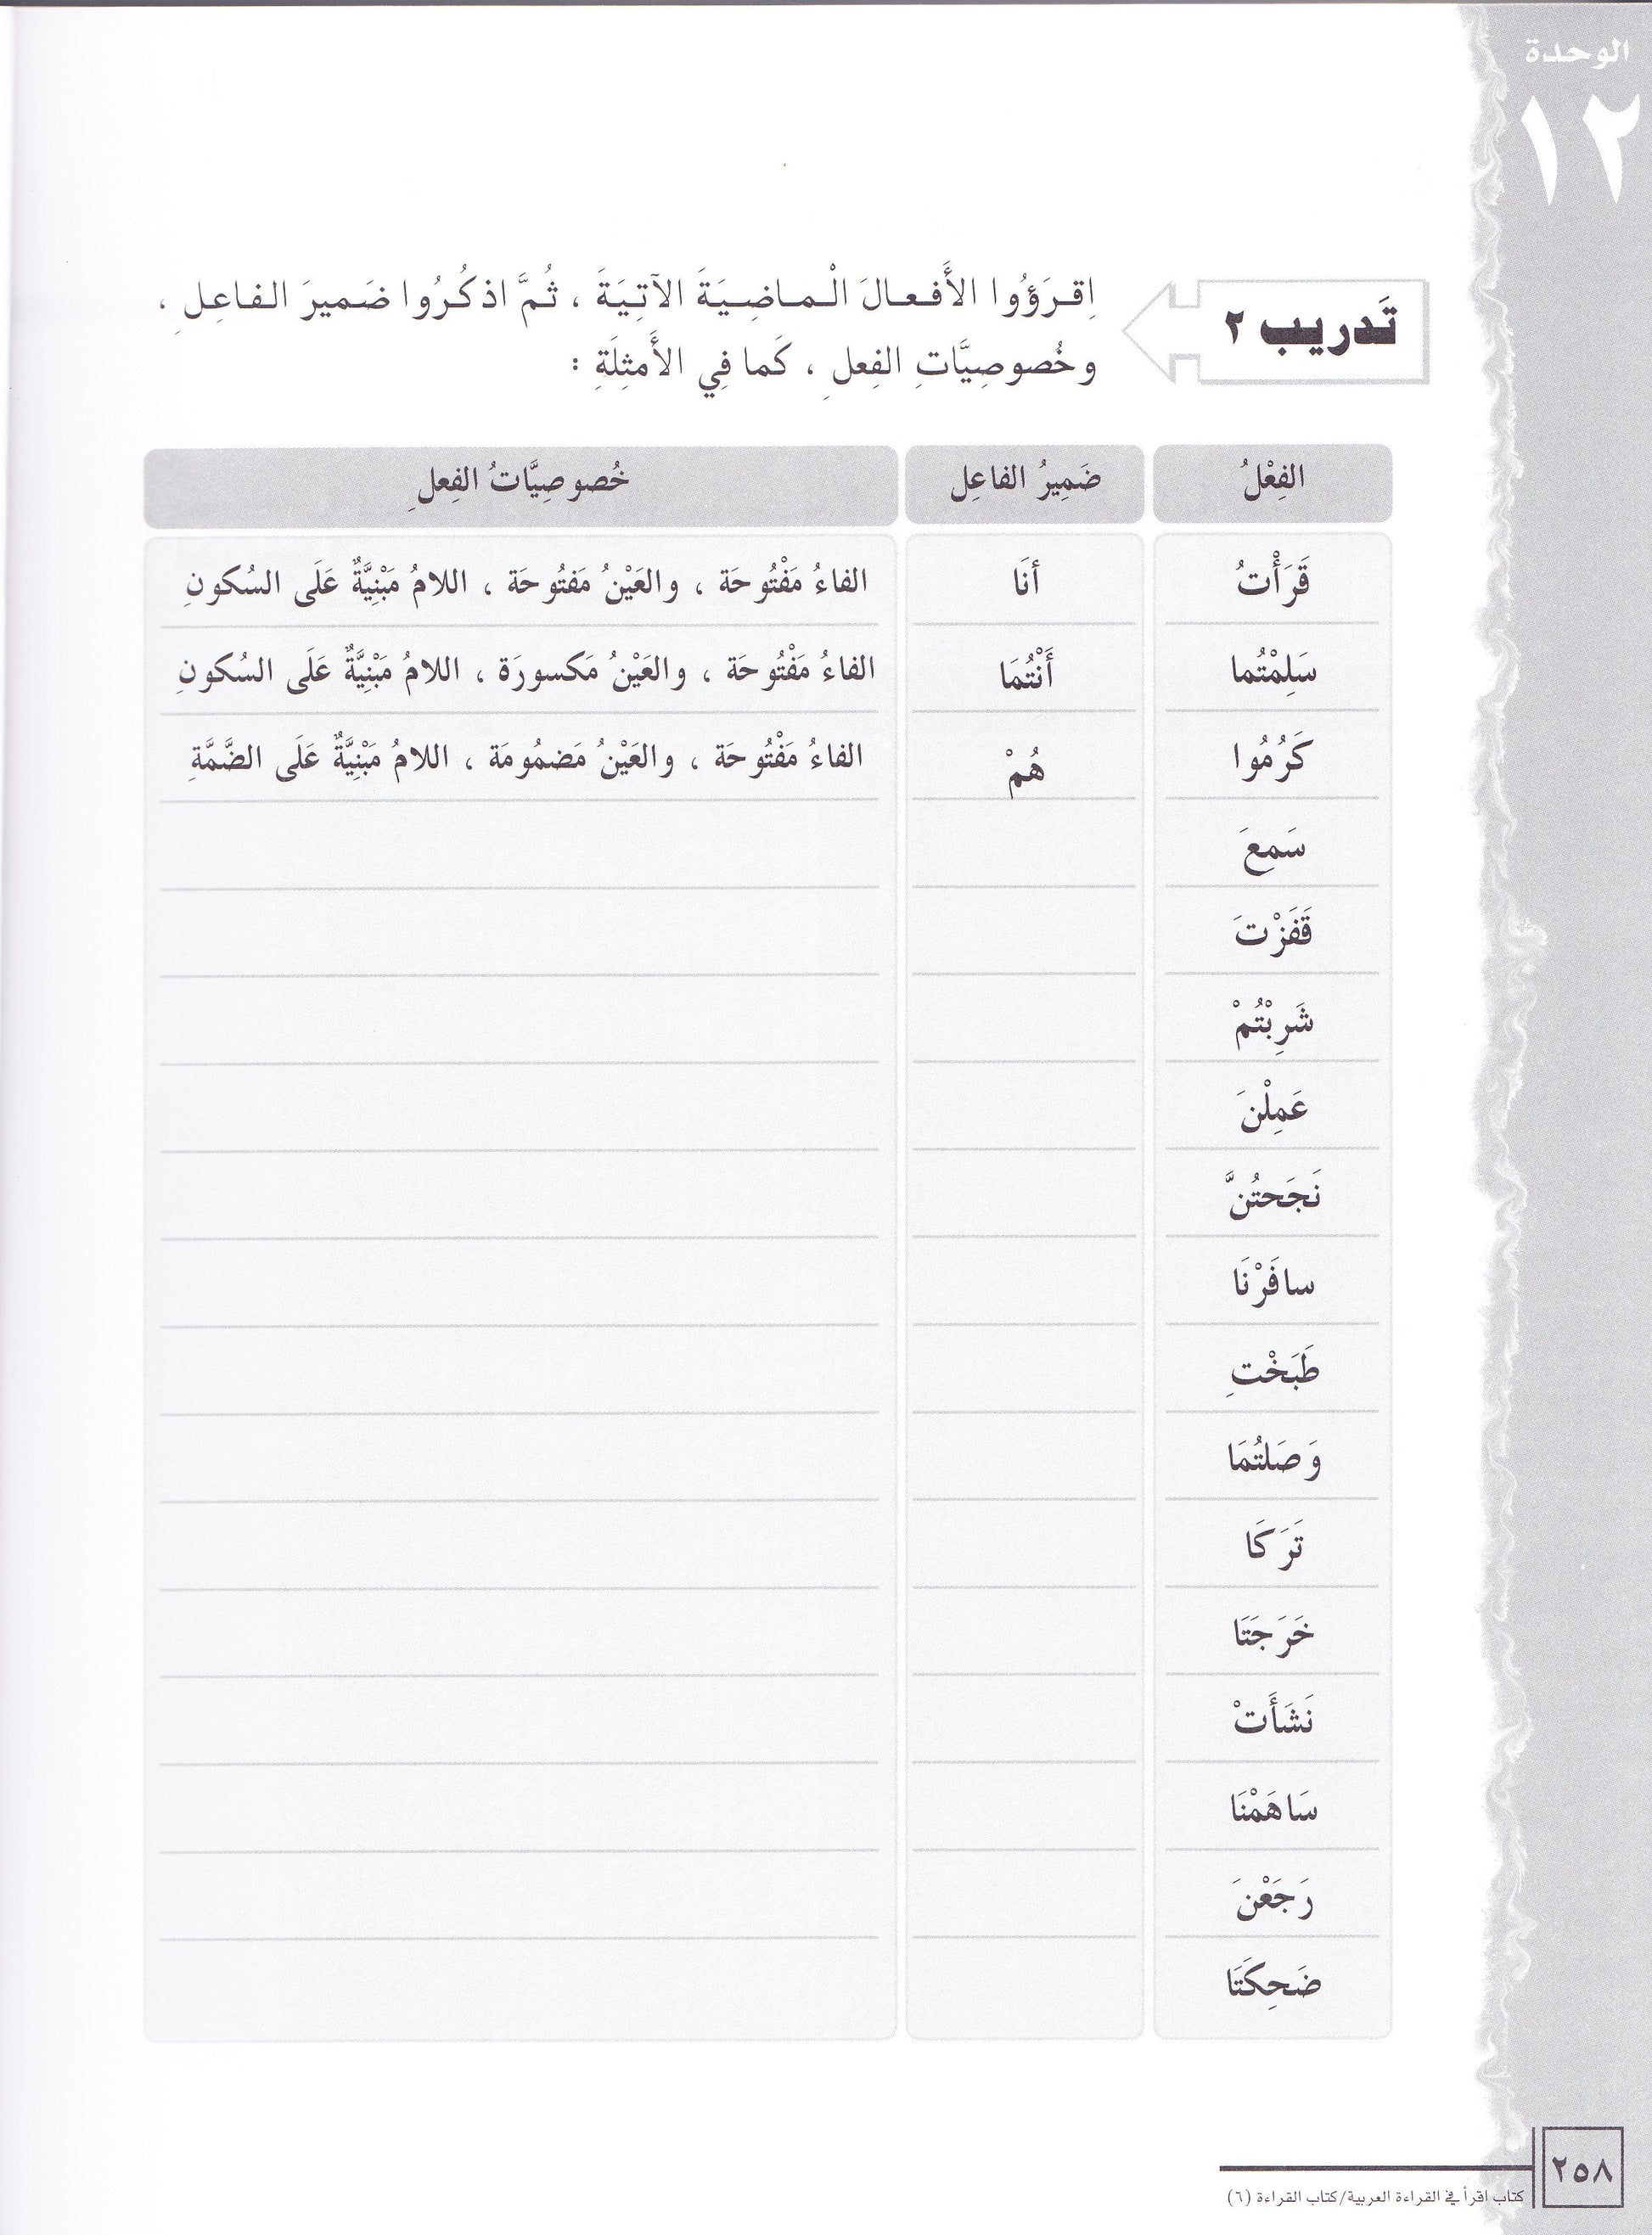 الوحدة
١٢
تَدريب ٢
اِقرَؤُوا الأَفعالَ الْماضِيَةَ الآتِيَةَ ، ثُمَّ اذكُرُوا ضَميرَ الفاعِلِ ،
وخُصوصِيَّاتِ الفِعلِ ، كَما فِي الأَمثِلَةِ :
الفِعْلُ ضَمِيرُ الفاعِلِ خُصوصِيَّاتُ الفِعلِ
قَرَأْتُ أنَا الفاءُ مَفْتُوحَة ، والعَيْنُ مَفتُوحَة ، اللامُ مَبْنِيَّةٌ عَلَى السُكونِ
سَلِمْتُما أَنْتُمَا الفاءُ مَفْتُوحَة ، والعَيْنُ مَكسورَة ، اللامُ مَبْنِيَّةٌ عَلَى السُكونِ
كَرُمُوا هُمْ الفاءُ مَفْتُوحَة ، والعَيْنُ مَضمُومَة ، اللامُ مَبْنِيَّةٌ عَلَى الضَّمَّةِ
سَمِعَ
قَفَزْتَ
شَرِبْتُمْ
عَمِلْنَ
نَجَحتُنَّ
سافَرْنَا
طَبَخْتِ
وَصَلتُمَا
تَرَكَا
خَرَجَتَا
نَشَأَتْ
سَاهَمْنَا
رَجَعْنَ
ضَحِكَتَا
٢٥٨
كتاب اقرأ في القراءة العربية/كتاب القراءة (٦)